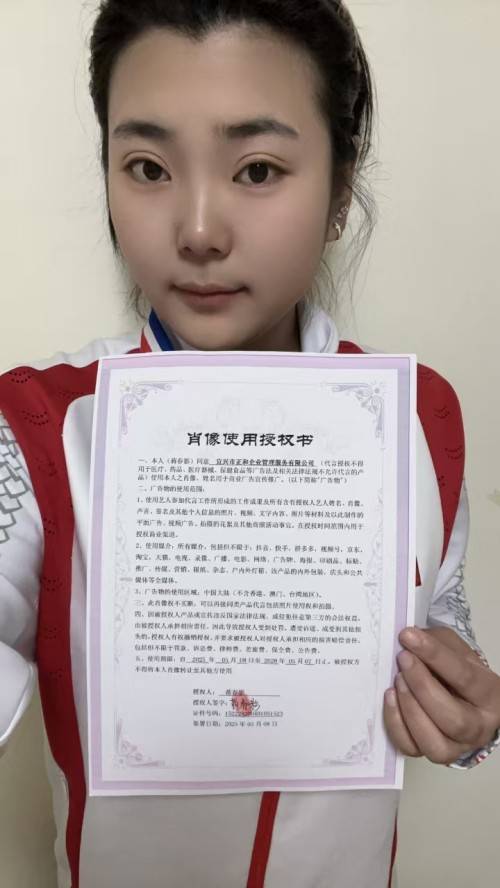 肖像使用授权书
一、本人（蒋春影）同意 宜兴市正和企业管理服务有限公司 （代言授权不得
用于医疗、药品、医疗器械、保健食品等广告法及相关法律法规不允许代言的产
品）使用本人之肖像、姓名用于商业广告宣传推广。（以下简称“广告物”）
二、广告物的使用范围：
1、使用艺人参加代言工作所形成的工作成果及所有含有授权人艺人姓名、肖像、
声音、签名及其他个人信息的照片、视频、文字内容、图片等材料及以此制作的
平面广告、视频广告、拍摄的花絮及其他商演活动事宜，在授权时间范围内用于
授权商业渠道。
2、使用媒介：所有媒介，包括但不限于：抖音、快手、拼多多、视频号、京东、
淘宝、天猫、电视、录像、广播、电影、网络、广告牌、海报、印刷品、标贴、
推广、外观、营销、报纸、杂志、户内外灯箱、该产品的内外包装、店头和公共
媒体等全媒体。
3、广告物的使用区域：中国大陆（不含香港、澳门、台湾地区）。
三、此肖像权不买断，可以再接同类产品代言包括照片使用权和拍摄。
四、因被授权人产品或宣传出
担责任，因此导致授权人受到处罚、遭受诉讼、或受到其他损
失的，授权人有权撤销授权，并要求被授权人对授权人承担相应的损害赔偿责任，
包括但不限于罚款、诉讼费、律师费、差旅费、保全费、公告费。
五、使用期限：自 2025 年 05 月 08 日至 2026 年 05 月 07 日止。被授权方
不得将本人肖像转让至其他方使用
授权人： 蒋春影
授权人签字：蒋春影
证件号码：
签署日期：2025 年 05 月 08 日